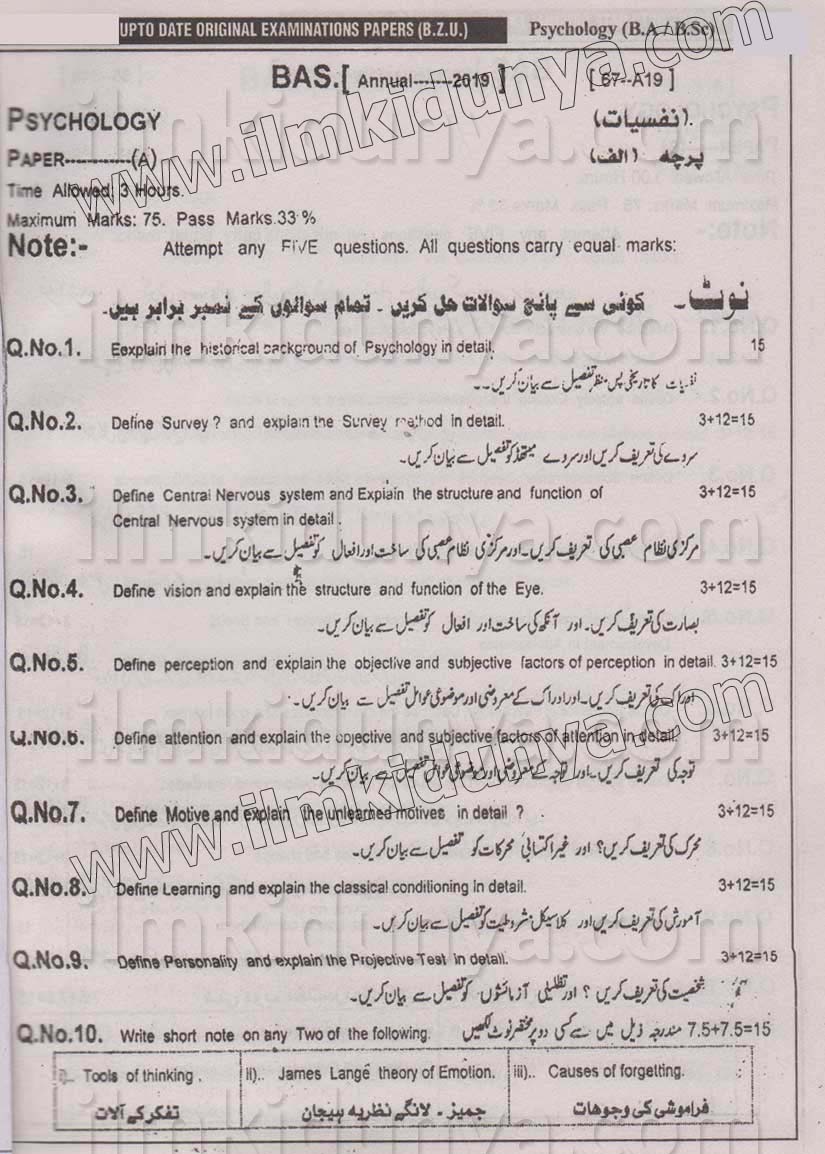 UPTO DATE ORIGINAL EXAMINATIONS PAPERS (B.Z.U.) Psychology (B.A / B.Sc)
BAS.[ Annual-------2019 ] [ 67--A19 ]
PSYCHOLOGY (نفسیات).
PAPER-----------(A) پرچہ (الف)
Time Allowed: 3 Hours.
Maximum Marks: 75. Pass Marks.33 %
Note:- Attempt any FIVE questions. All questions carry equal marks:
نوٹ۔ کوئی سے پانچ سوالات حل کریں ۔ تمام سوالوں کے نمبر برابر ہیں۔
Q.No.1. Eexplain the historical background of Psychology in detail. 15
نفسیات کا تاریخی پس منظر تفصیل سے بیان کریں۔۔
Q.No.2. Define Survey ? and explain the Survey method in detail. 3+12=15
سروے کی تعریف کریں اور سروے میتھڈ کو تفصیل سے بیان کریں۔
Q.No.3. Define Central Nervous system and Explain the structure and function of 3+12=15
Central Nervous system in detail .
مرکزی نظام عصبی کی تعریف کریں۔ اور مرکزی نظام عصبی کی ساخت اور افعال کو تفصیل سے بیان کریں۔
Q.No.4. Define vision and explain the structure and function of the Eye. 3+12=15
بصارت کی تعریف کریں۔ اور آنکھ کی ساخت اور افعال کو تفصیل سے بیان کریں۔
Q.No.5. Define perception and explain the objective and subjective factors of perception in detail. 3+12=15
ادراک کی تعریف کریں۔ اور ادراک کے معروضی اور موضوعی عوامل تفصیل سے بیان کریں۔
Q.No.6. Define attention and explain the objective and subjective factors of attention in detail 3+12=15
توجہ کی تعریف کریں۔ اور توجہ کے معروضی اور موضوعی عوامل تفصیل سے بیان کریں۔
Q.No.7. Define Motive and explain the unlearned motives in detail ? 3+12=15
محرک کی تعریف کریں؟ اور غیر اکتسابی محرکات کو تفصیل سے بیان کریں۔
Q.No.8. Define Learning and explain the classical conditioning in detail. 3+12=15
آموزش کی تعریف کریں اور کلاسیکل مشروطیت کو تفصیل سے بیان کریں۔
Q.No.9. Define Personality and explain the Projective Test in detail. 3+12=15
شخصیت کی تعریف کریں ؟ اور تظلیلی آزمائشوں کو تفصیل سے بیان کریں۔
Q.No.10. Write short note on any Two of the following. مندرجہ ذیل میں سے کسی دو پر مختصر نوٹ لکھیں 7.5+7.5=15
i).. Tools of thinking . ii).. James Lange theory of Emotion. iii).. Causes of forgetting.
تفکر کے آلات جمیز ۔ لانگے نظریہ ہیجان فراموشی کی وجوھات
www.ilmkidunya.com
www.ilmkidunya.com
ilmkidunya.com
ilmkidunya.com
ilmkidunya.com
ilmkidunya.com
ilmkidunya.com
ilmkidunya.com